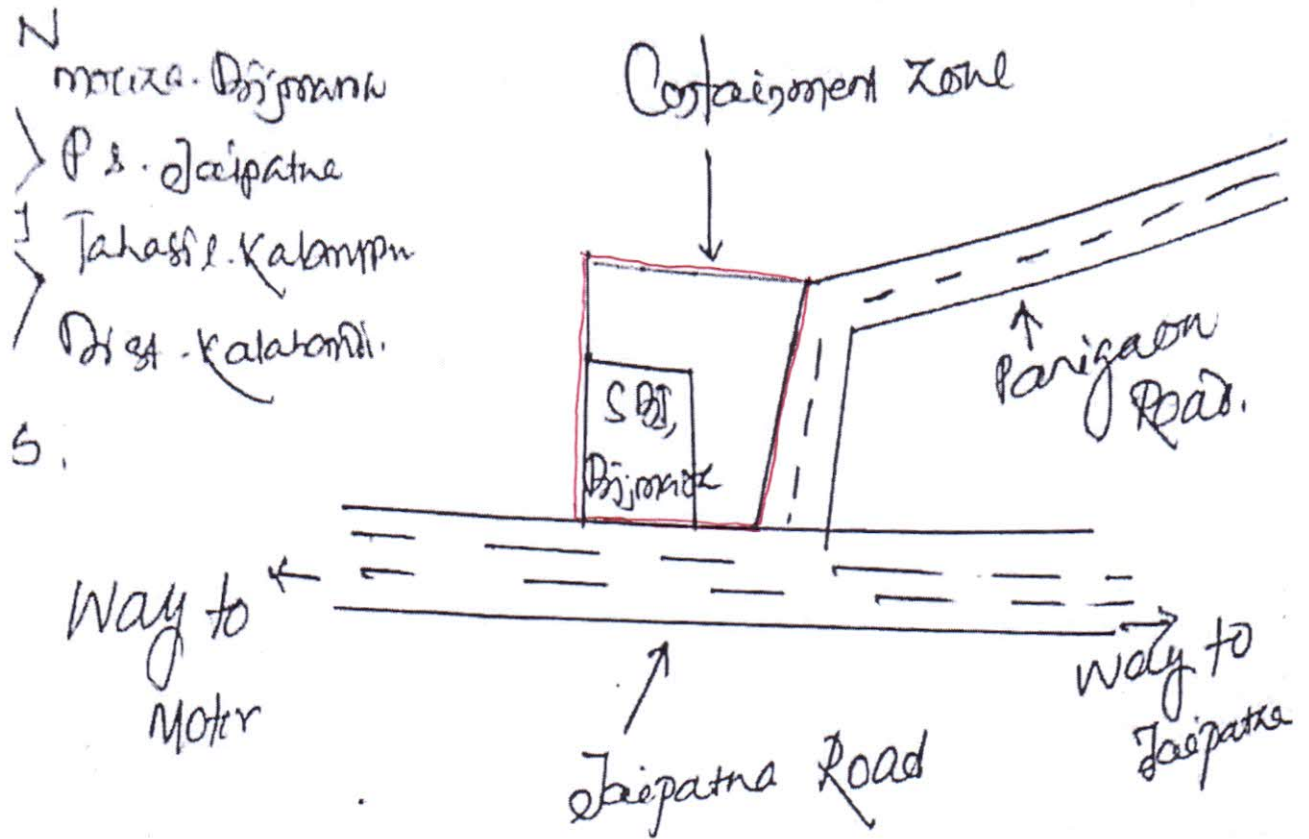 N
Mouza. Bijmara
P.S. Jaipatna
Tahasil. Kalampur
Dist. Kalahandi.
S.
Containment Zone
SBI,
Bijmara
Parigaon
Road.
Way to
Moter
Jaipatna Road
Way to
Jaipatna